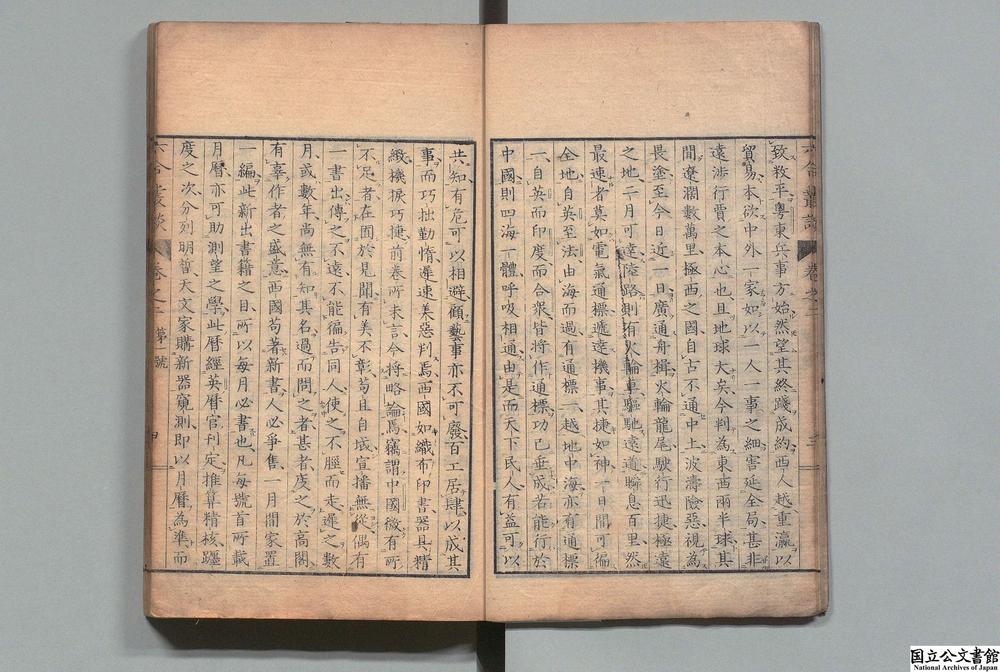 六合叢談 卷之二 三
致救平粵東兵事方始然望其終踐成約西人越重瀛以
貿易本欲中外一家如以一人一事之細害延全局甚非
遠涉行賈之本心也且地球大矣今判為東西兩半球其
間遼濶數萬里極西之國自古不通中土波濤險惡視為
畏途至今日近一日廣通舟楫火輪龍尾駛行迅捷極遠
之地二月可達陸路則有火輪車驅馳遠道瞬息百里然
最速者莫如電氣通標遞達機事其捷如神一日間可徧
全地自英至法由海而過有通標一越地中海亦有通標
一自英而印度而合眾皆將作通標功已垂成若能行於
中國則四海一體呼吸相通由是而天下民人有益可以
共知有危可以相避顧藝事亦不可廢百工居肆以成其
事而巧拙勤惰遲速美惡判焉西國如織布印書器具精
緻機捩巧捷前卷所未言今將略論焉竊謂中國微有所
不足者在囿於見聞有美不彰苟且自域宣播無從偶有
一書出傳之不遠不能徧告同人使之不脛而走遲之數
月或數年尚無有知其名過而問之者甚者庋之於高閣
有辜作者之盛意西國苟著新書人必爭售一月間家置
一編此新出書籍之目所以每月必書也凡每號首所載
月曆亦可助測望之學此曆經英曆官刊定推算精核躔
度之次分列明晳天文家購新器窺測即以月曆為準而
六合叢談 卷之二 第一號